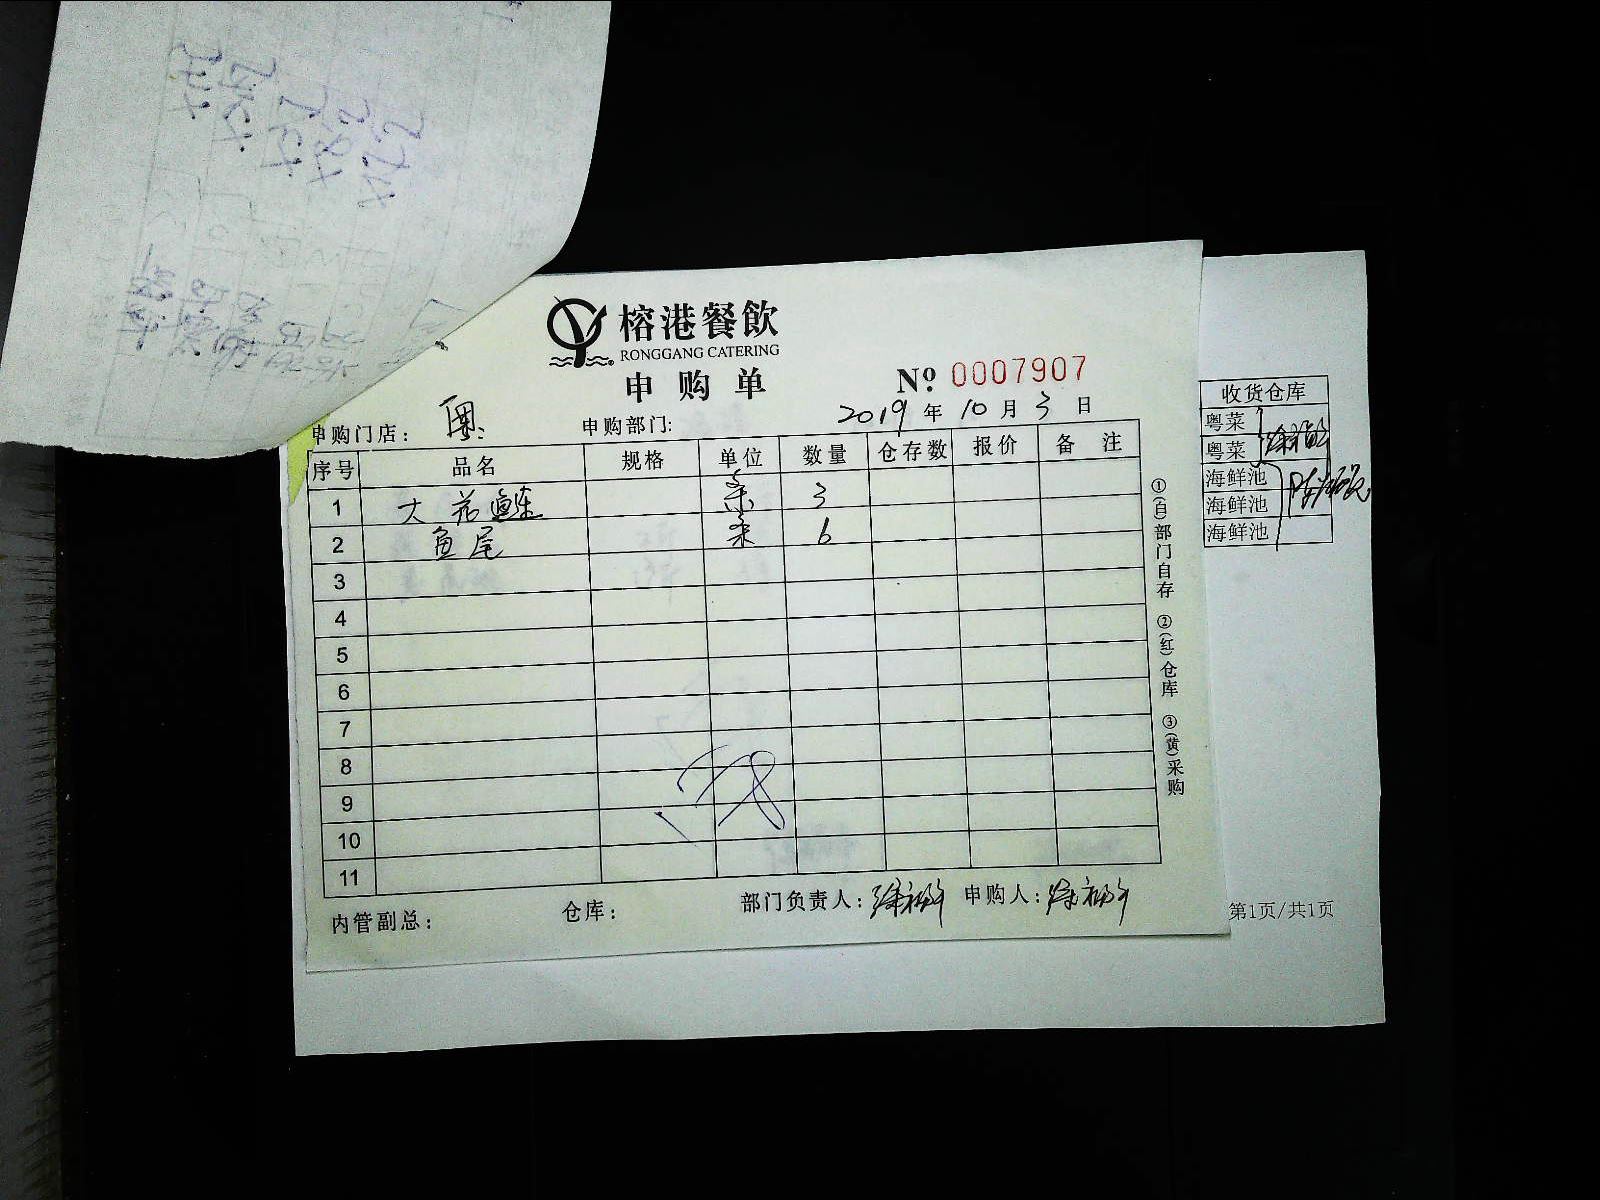 榕港餐飲
RONGGANG CATERING
申购单
№ 0007907
2019年10月3日
申购门店: 申购部门:
序号 品名 规格 单位 数量 仓存数 报价 备注
1 大花鲢 条 3
2 鱼尾 条 6
3
4
5
6
7
8
9
10
11
内管副总: 仓库: 部门负责人: 申购人:
①(白)部门自存 ②(红)仓库 ③(黄)采购
收货仓库
粤菜
粤菜
海鲜池
海鲜池
海鲜池
第1页/共1页